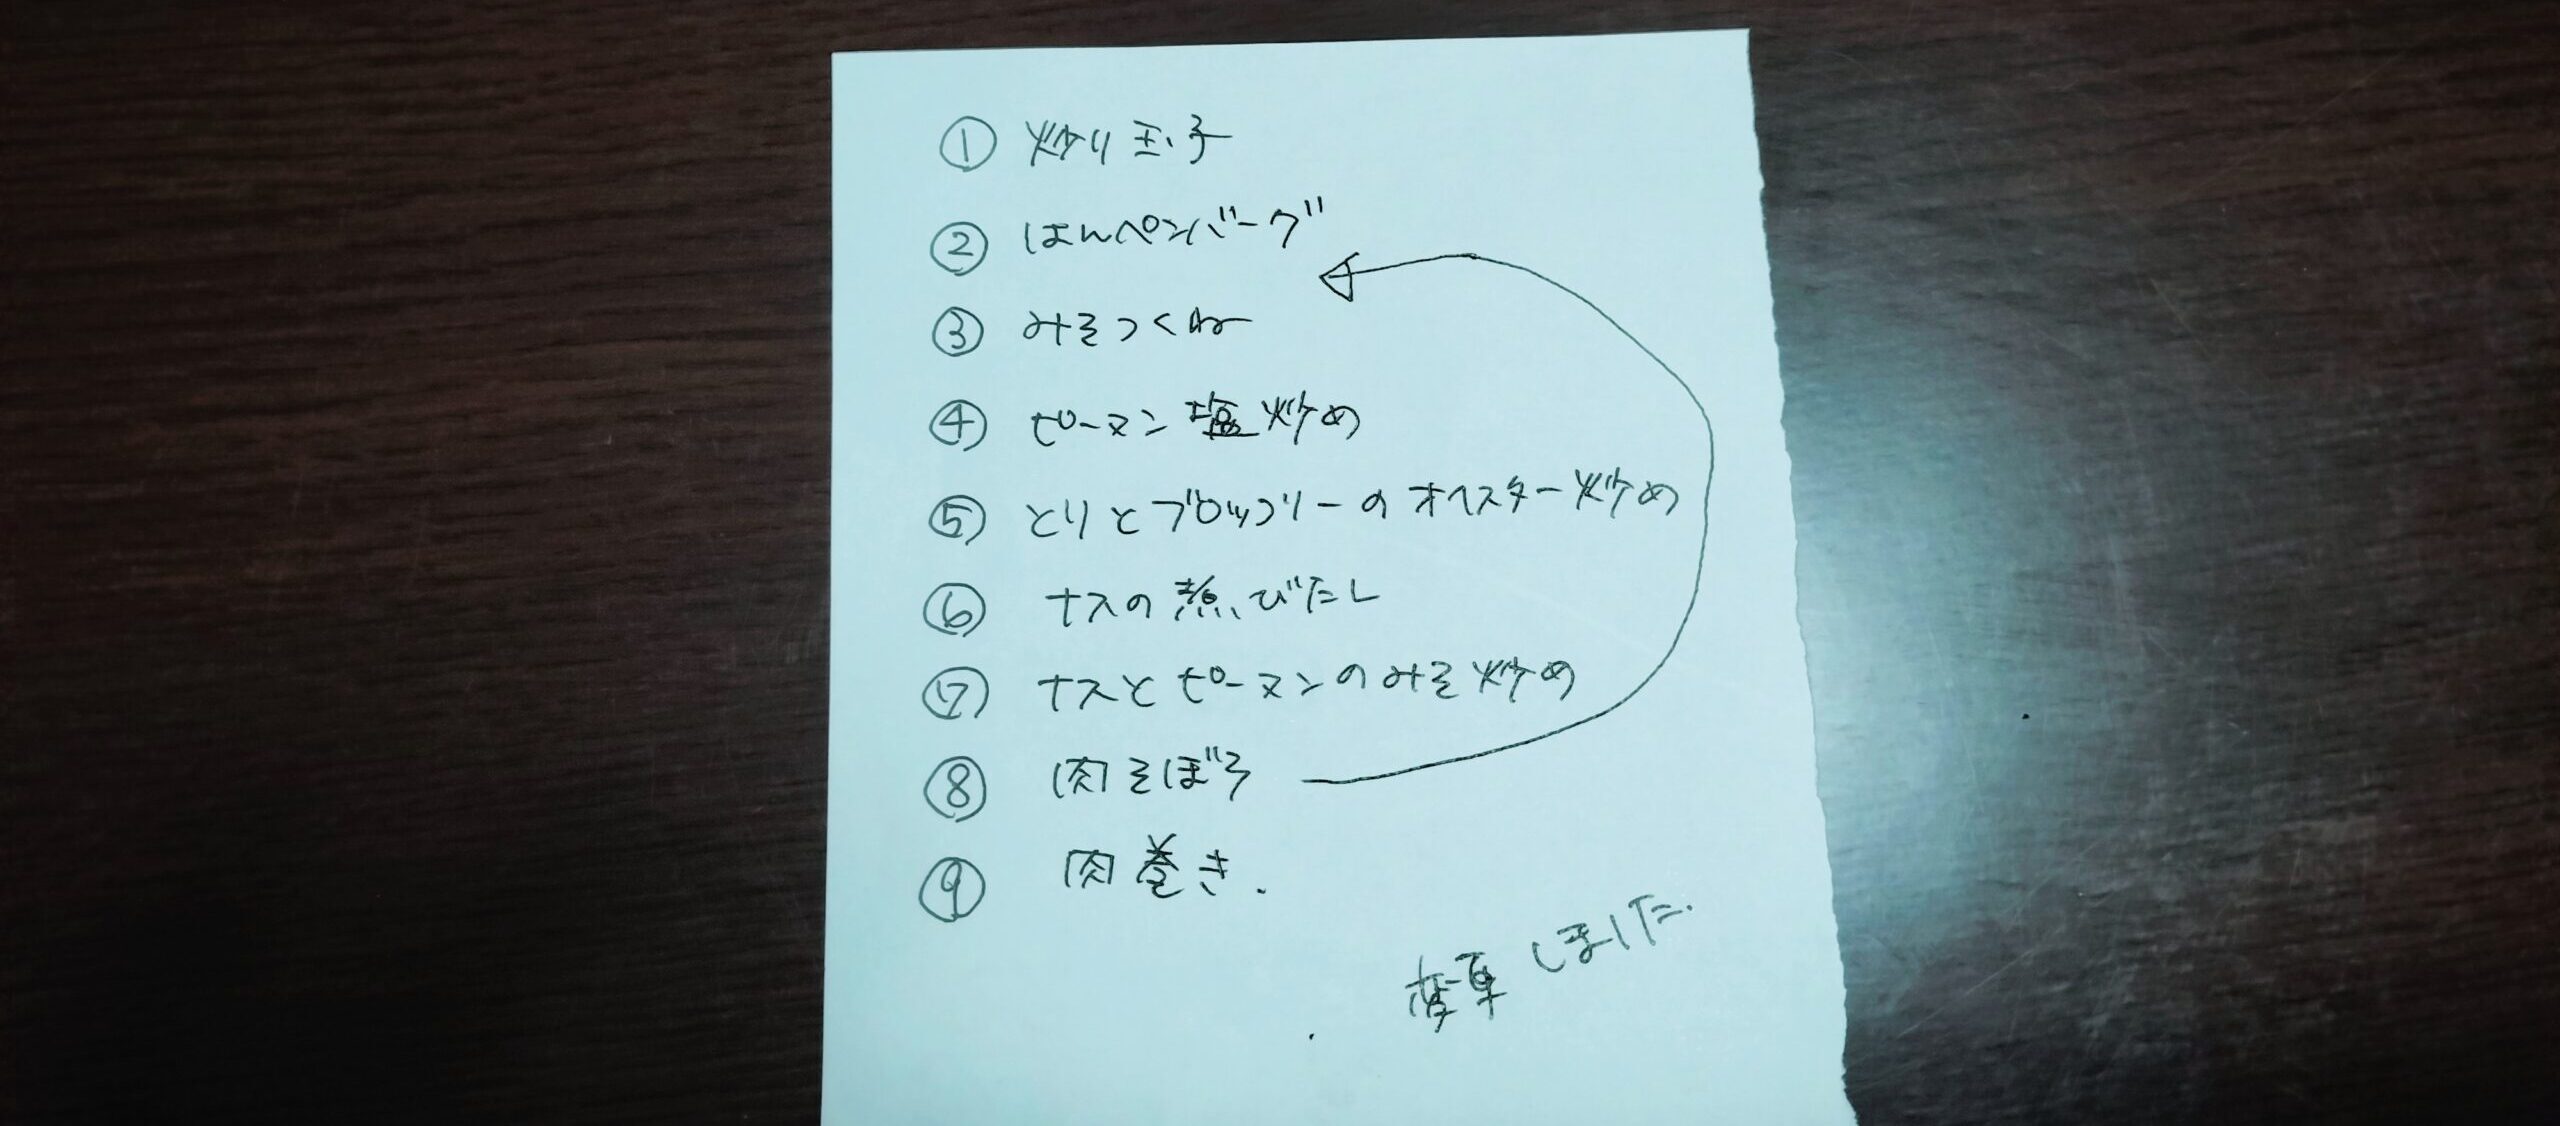 ① 炒り玉子
② はんペンバーグ
③ みそつくね
④ ピーマン塩炒め
⑤ とりとブロッコリーのオイスター炒め
⑥ ナスの煮びたし
⑦ ナスとピーマンのみそ炒め
⑧ 肉そぼろ
⑨ 肉巻き.
しました.